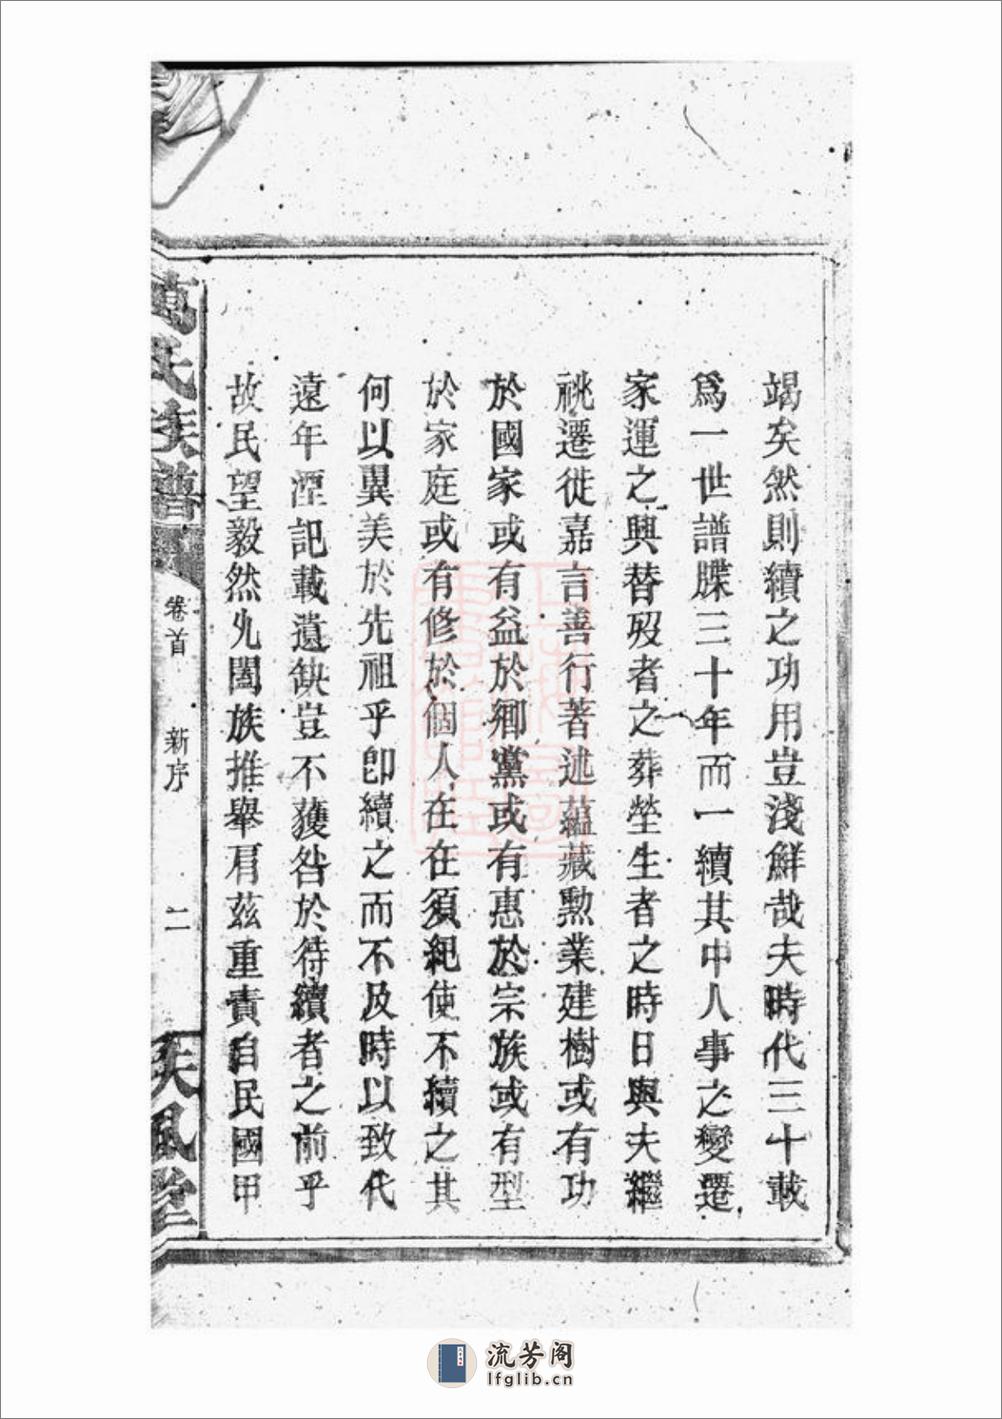 竭矣然則續之功用豈淺鮮哉夫時代三十載
爲一世譜牒三十年而一續其中人事之變遷
家運之興替歿者之葬塋生者之時日與夫繼
祧遷徙嘉言善行著述蘊藏勲業建樹或有功
於國家或有益於鄉黨或有惠於宗族或有型
於家庭或有修於個人在在須紀使不續之其
何以翼美於先祖乎卽續之而不及時以致代
遠年湮記載遺缺豈不獲咎於待續者之前乎
故民望毅然允闔族推舉肩茲重責自民國甲
萬氏族譜
卷首
新序
二
堂
流芳阁
lfglib.cn